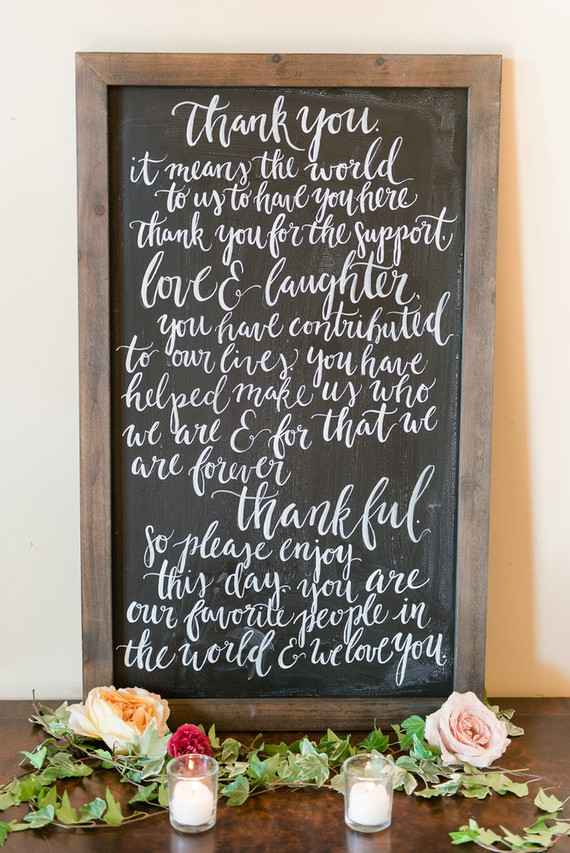 Thank you.
it means the world
to us to have you here
thank you for the support,
love & laughter,
you have contributed
to our lives. you have
helped make us who
we are & for that we
are forever
thankful.
So please enjoy
this day. you are
our favorite people in
the world & we love you.